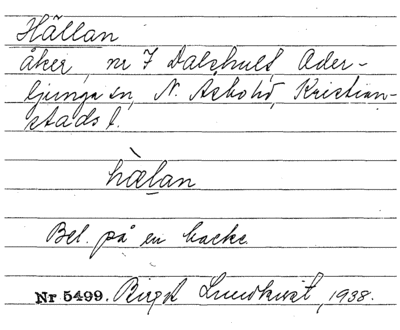 Hällan
åker, nr 7 Dalshult, Oder-
ljunga sn, N. Åsbo hd, Kristian-
stads l.
hàlan
Bel. på en backe.
Nr 5499. Birgit Lundkvist, 1938.